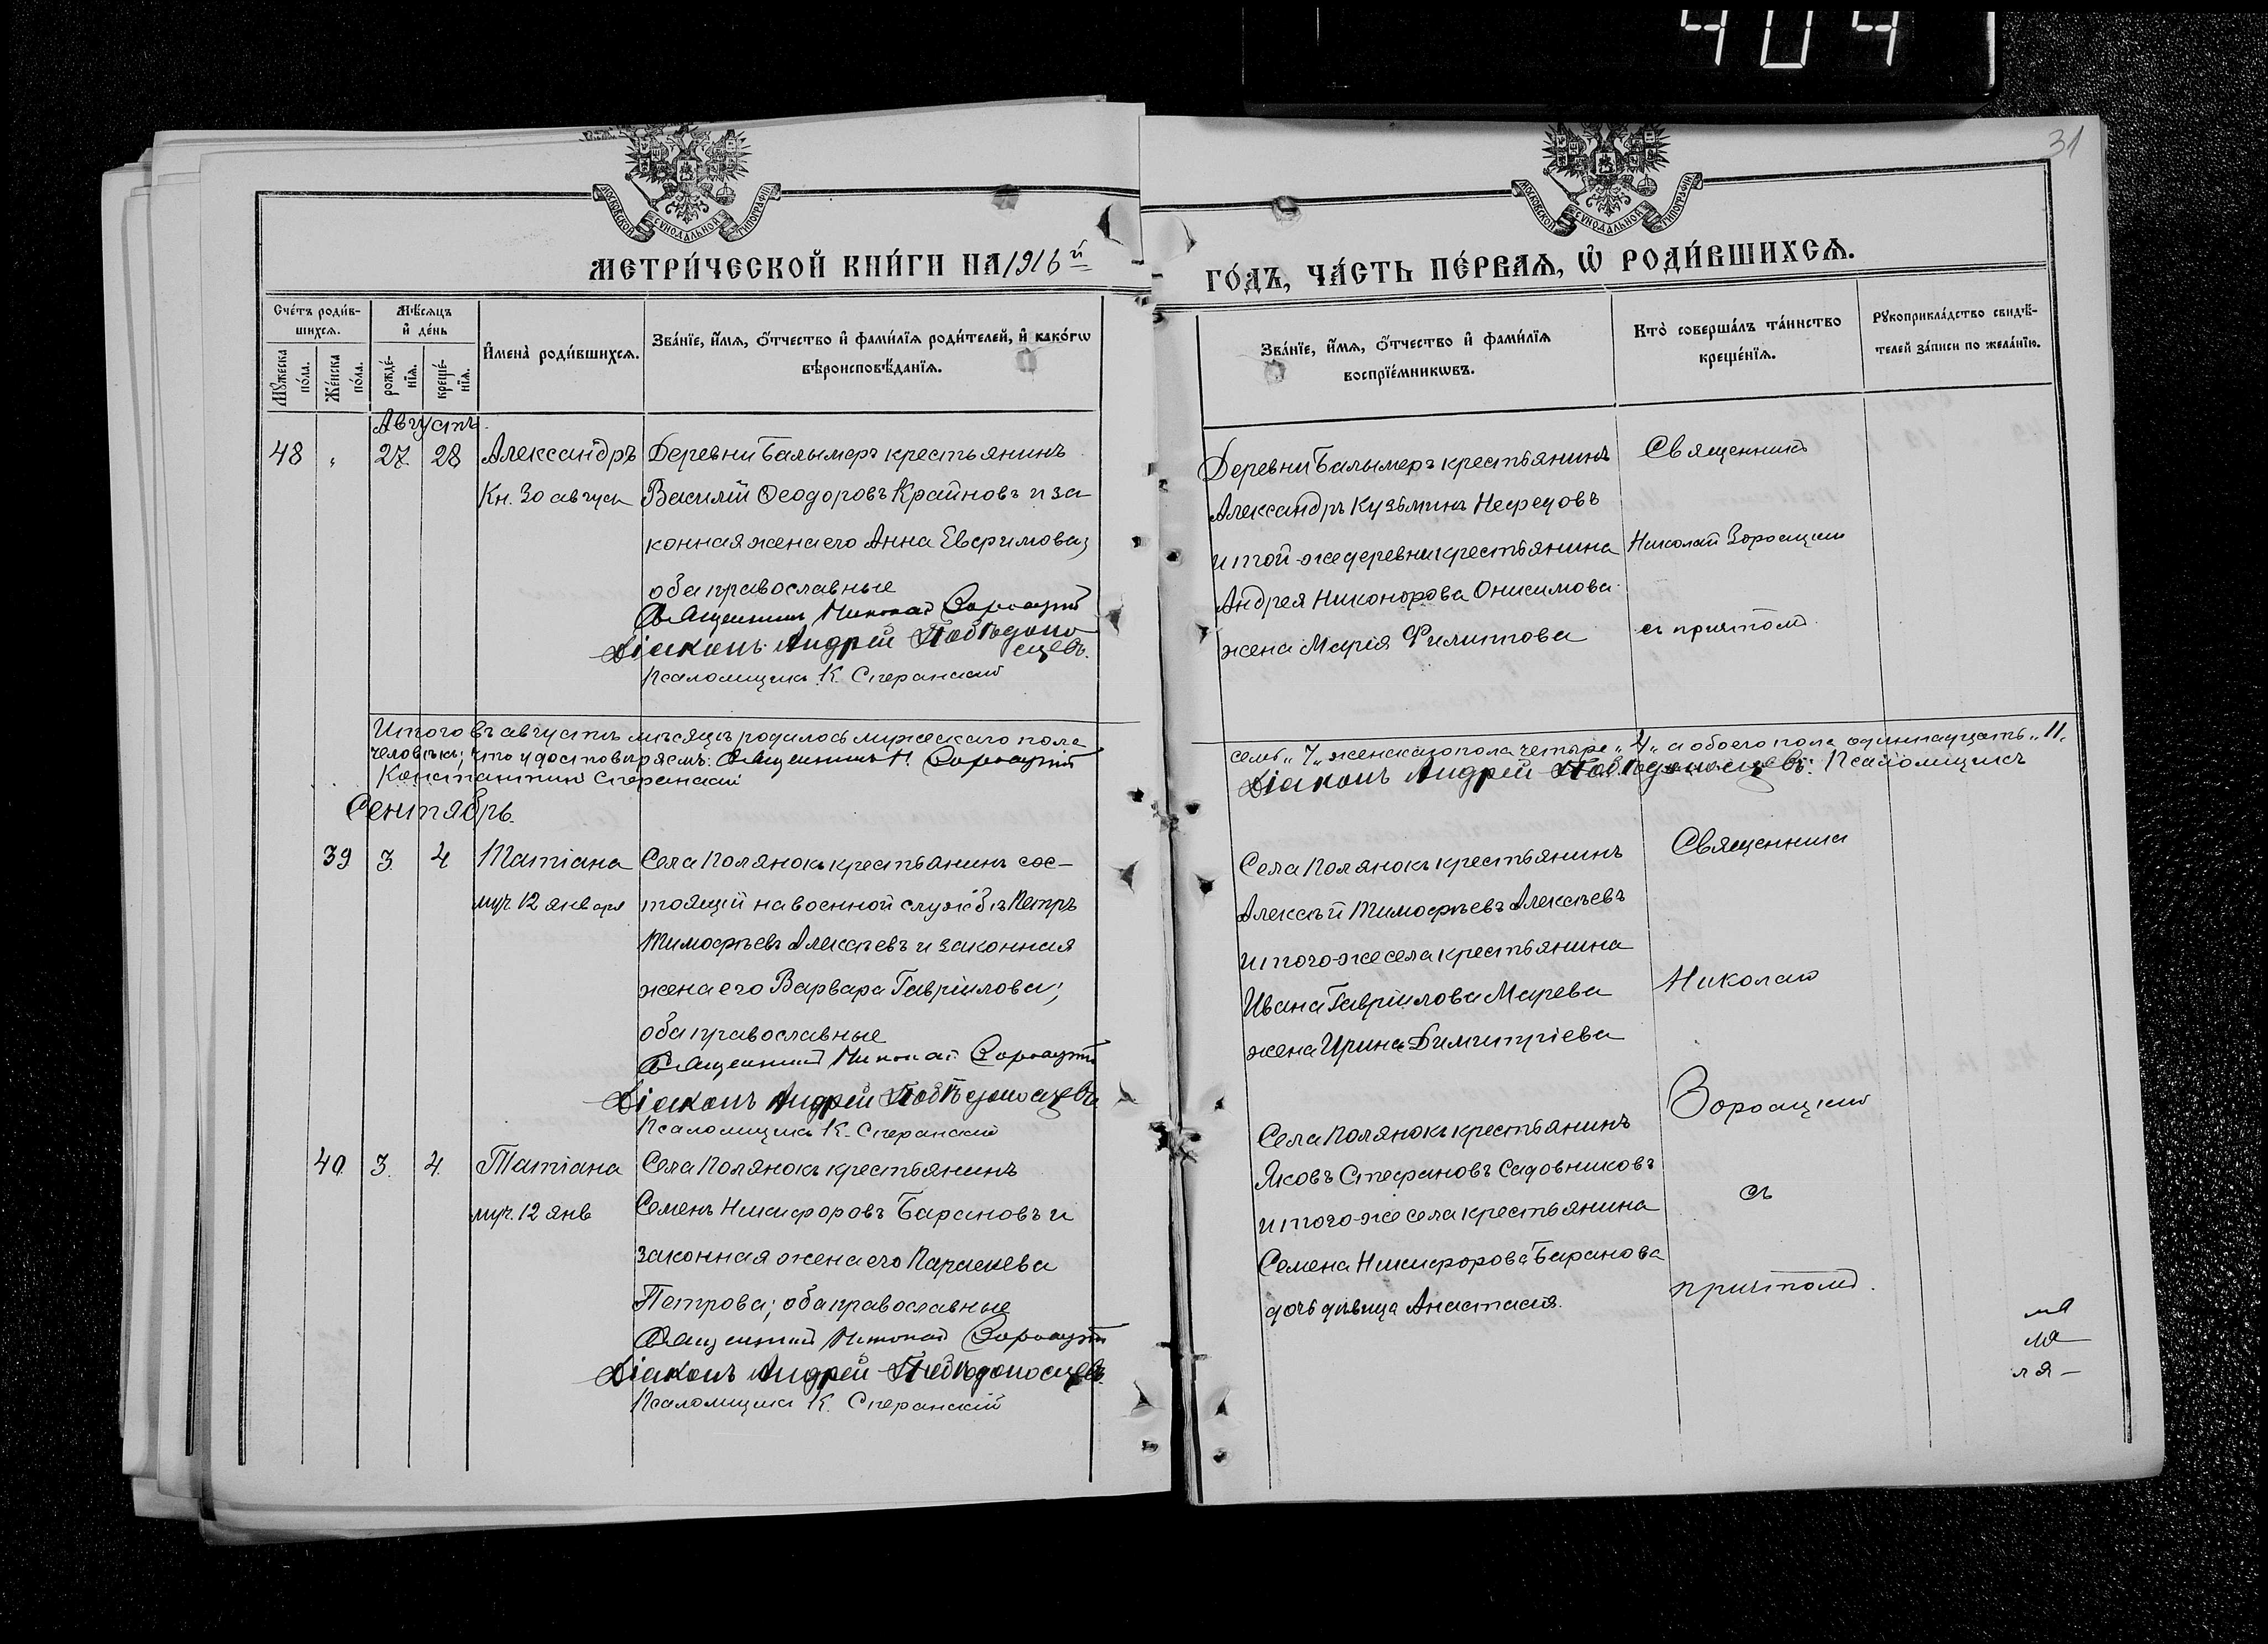 404
31
МОСКОВСКОЙ СУНОДАЛЬНОЙ ТИПОГРАФІИ
МОСКОВСКОЙ СУНОДАЛЬНОЙ ТИПОГРАФІИ
МЕТРИ́ЧЕСКОЙ КНИ́ГИ НА 1916й
ГО́ДЪ, ЧА́СТЬ ПЕ́РВАѦ, Ѡ҆ РОДИ́ВШИХСѦ.
Сче́тъ роди́в-
шихсѧ.
Мѣ́сѧцъ
и҆ де́нь
Мꙋ́жеска по́ла.
Же́нска по́ла.
рожде́-
нїѧ.
креще́-
нїѧ.
И҆мена̀ роди́вшихсѧ.
Зва́нїе, и҆́мѧ, ѻ҆́тчество и҆ фами́лїѧ роди́телей, и҆ како́гѡ
вѣроисповѣ́данїѧ.
Зва́нїе, и҆́мѧ, ѻ҆́тчество и҆ фами́лїѧ
воспрїе́мникѡвъ.
Кто̀ соверша́лъ та́инство
креще́нїѧ.
Рꙋкоприкла́дство свидѣ́-
телей за́писи по жела́нїю.
Августъ.
48 " 27 28 Александръ Деревни Балымеръ крестьянинъ
Кн. 30 август Василій Ѳеодоровъ Крайновъ и за
конная жена его Анна Евфимова;
оба православные
Священникъ Николай Зороацкій
Діаконъ Андрей Побѣдоно
сцевъ.
Псаломщикъ К. Сперанскій
Деревни Балымеръ крестьянинъ
Александръ Кузьминъ Нефедовъ
и той-же деревни крестьянина
Андрея Никонорова Онисимова
жена Марія Филиппова
Священникъ
Николай Зороацкій
съ причтомъ
Итого въ августѣ мѣсяцѣ родилось мужескаго пола
семь "7" женскаго пола четыре "4" а обоего пола одиннадцать "11"
человѣкъ; что и удостовѣряемъ: Священникъ Н. Зороацкій
Діаконъ Андрей Побѣдоносцевъ: Псаломщикъ
Константинъ Сперанскій
Сентябрь.
39 3. 4 Татіана Села Полянокъ крестьянинъ сос-
муч. 12 января тоящій на военной службѣ Петръ
Тимофѣевъ Алексѣевъ и законная
жена его Варвара Гавріилова;
оба православные
Священникъ Николай Зороацкій
Діаконъ Андрей Побѣдоносцевъ
Псаломщикъ К. Сперанскій
Села Полянокъ крестьянинъ
Алексѣй Тимофѣевъ Алексѣевъ
и того-же села крестьянина
Ивана Гавріилова Марева
жена Ирина Димитріева
Священникъ
Николай
Зороацкій
съ
причтомъ.
40 3. 4. Татіана Села Полянокъ крестьянинъ
муч. 12 янв Семенъ Никифоровъ Барановъ и
законная жена его Параскева
Петрова; оба православные
Священникъ Николай Зороацкій
Діаконъ Андрей Побѣдоносцевъ
Псаломщикъ К. Сперанскій
Села Полянокъ крестьянинъ
Яковъ Стефановъ Садовниковъ
и того-же села крестьянина
Семена Никифорова Баранова
дочь дѣвица Анастасія.